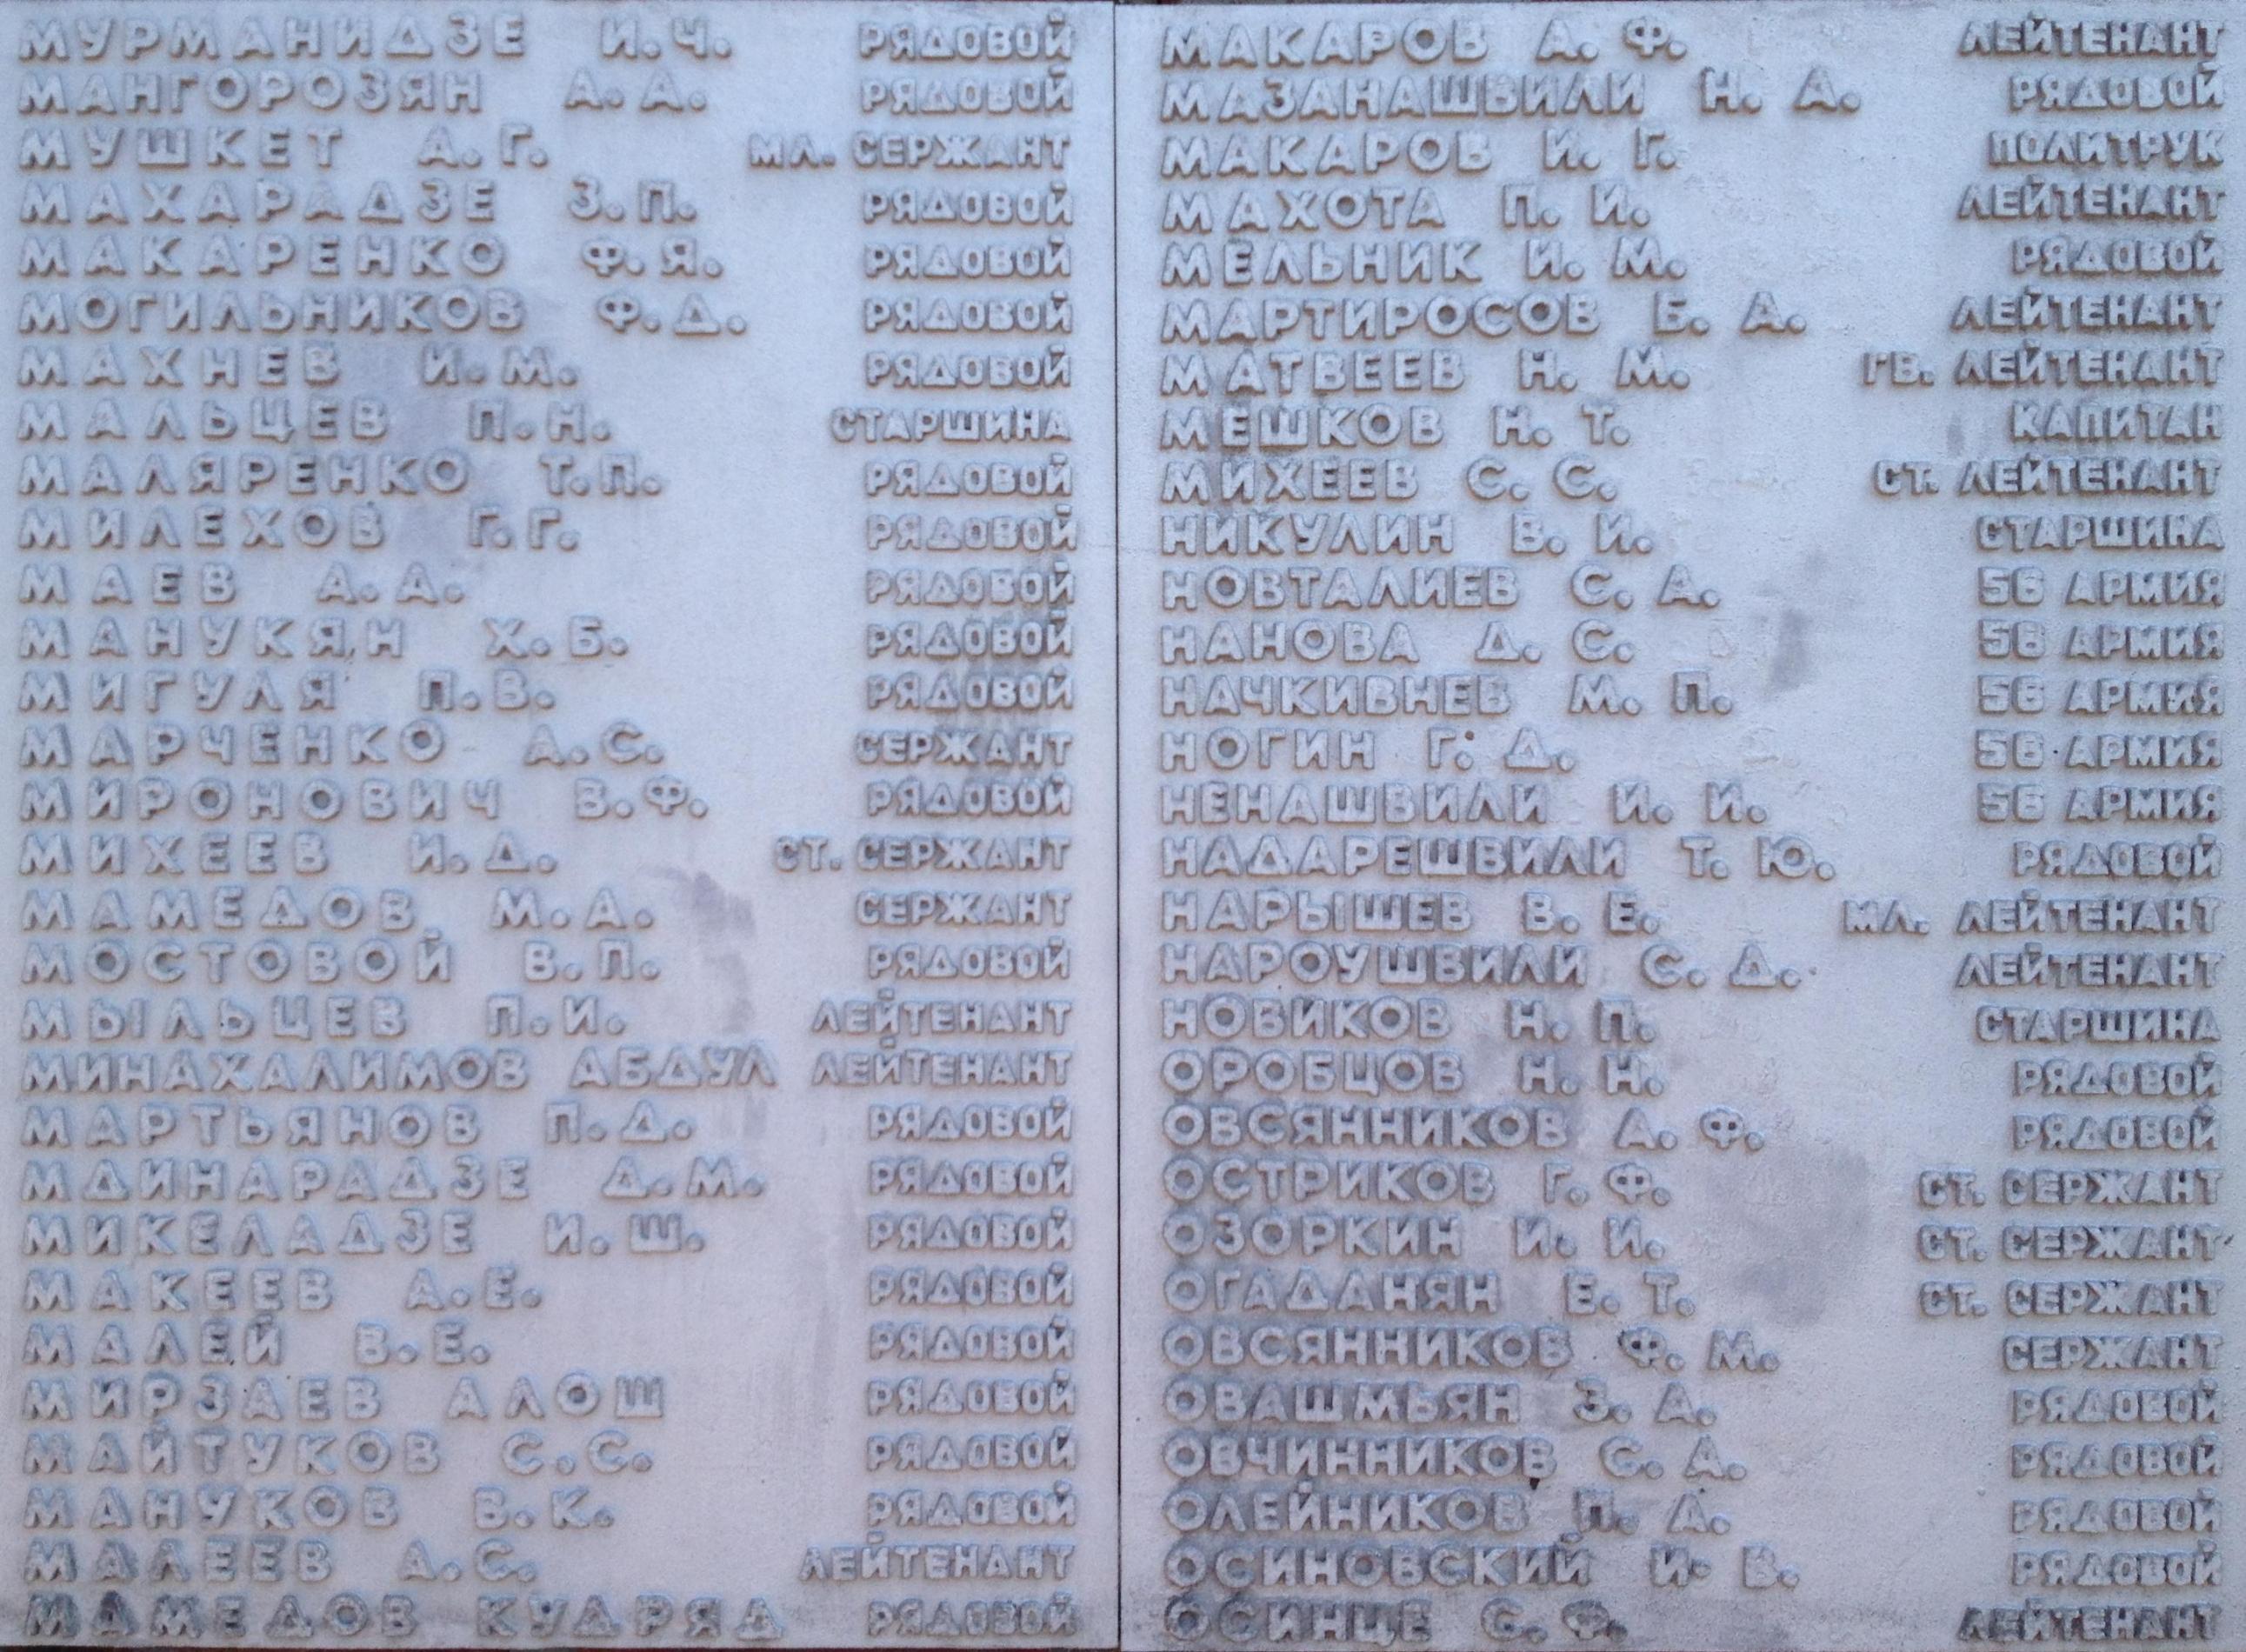 МУРМАНИДЗЕ И.Ч. РЯДОВОЙ
МАНГОРОЗЯН А.А. РЯДОВОЙ
МУШКЕТ А.Г. МЛ. СЕРЖАНТ
МАХАРАДЗЕ З.П. РЯДОВОЙ
МАКАРЕНКО Ф.Я. РЯДОВОЙ
МОГИЛЬНИКОВ Ф.Д. РЯДОВОЙ
МАХНЕВ И.М. РЯДОВОЙ
МАЛЬЦЕВ П.Н. СТАРШИНА
МАЛЯРЕНКО Т.П. РЯДОВОЙ
МИЛЕХОВ Г.Г. РЯДОВОЙ
МАЕВ А.А. РЯДОВОЙ
МАНУКЯН Х.Б. РЯДОВОЙ
МИГУЛЯ П.В. РЯДОВОЙ
МАРЧЕНКО А.С. СЕРЖАНТ
МИРОНОВИЧ В.Ф. РЯДОВОЙ
МИХЕЕВ И.Д. СТ. СЕРЖАНТ
МАМЕДОВ М.А. СЕРЖАНТ
МОСТОВОЙ В.П. РЯДОВОЙ
МЫЛЬЦЕВ П.И. ЛЕЙТЕНАНТ
МИНАХАЛИМОВ АБДУЛ ЛЕЙТЕНАНТ
МАРТЬЯНОВ П.Д. РЯДОВОЙ
МДИНАРАДЗЕ Д.М. РЯДОВОЙ
МИКЕЛАДЗЕ И.Ш. РЯДОВОЙ
МАКЕЕВ А.Е. РЯДОВОЙ
МАЛЕЙ В.Е. РЯДОВОЙ
МИРЗАЕВ АЛОШ РЯДОВОЙ
МАЙТУКОВ С.С. РЯДОВОЙ
МАНУКОВ В.К. РЯДОВОЙ
МАЛЕЕВ А.С. ЛЕЙТЕНАНТ
МАМЕДОВ КУДРЯД РЯДОВОЙ
МАКАРОВ А. Ф. ЛЕЙТЕНАНТ
МАЗАНАШВИЛИ Н. А. РЯДОВОЙ
МАКАРОВ И. Г. ПОЛИТРУК
МАХОТА П. И. ЛЕЙТЕНАНТ
МЕЛЬНИК И. М. РЯДОВОЙ
МАРТИРОСОВ Б. А. ЛЕЙТЕНАНТ
МАТВЕЕВ Н. М. ГВ. ЛЕЙТЕНАНТ
МЕШКОВ Н. Т. КАПИТАН
МИХЕЕВ С. С. СТ. ЛЕЙТЕНАНТ
НИКУЛИН В. И. СТАРШИНА
НОВТАЛИЕВ С. А. 56 АРМИЯ
НАНОВА Д. С. 56 АРМИЯ
НАЧКИВНЕВ М. П. 56 АРМИЯ
НОГИН Г. Д. 56 АРМИЯ
НЕНАШВИЛИ И. И. 56 АРМИЯ
НАДАРЕШВИЛИ Т. Ю. РЯДОВОЙ
НАРЫШЕВ В. Е. МЛ. ЛЕЙТЕНАНТ
НАРОУШВИЛИ С. Д. ЛЕЙТЕНАНТ
НОВИКОВ Н. П. СТАРШИНА
ОРОБЦОВ Н. Н. РЯДОВОЙ
ОВСЯННИКОВ А. Ф. РЯДОВОЙ
ОСТРИКОВ Г. Ф. СТ. СЕРЖАНТ
ОЗОРКИН И. И. СТ. СЕРЖАНТ
ОГАДАНЯН Е. Т. СТ. СЕРЖАНТ
ОВСЯННИКОВ Ф. М. СЕРЖАНТ
ОВАШМЬЯН З. А. РЯДОВОЙ
ОВЧИННИКОВ С. А. РЯДОВОЙ
ОЛЕЙНИКОВ П. А. РЯДОВОЙ
ОСИНОВСКИЙ И. В. РЯДОВОЙ
ОСИНЦЕ С. Ф. ЛЕЙТЕНАНТ